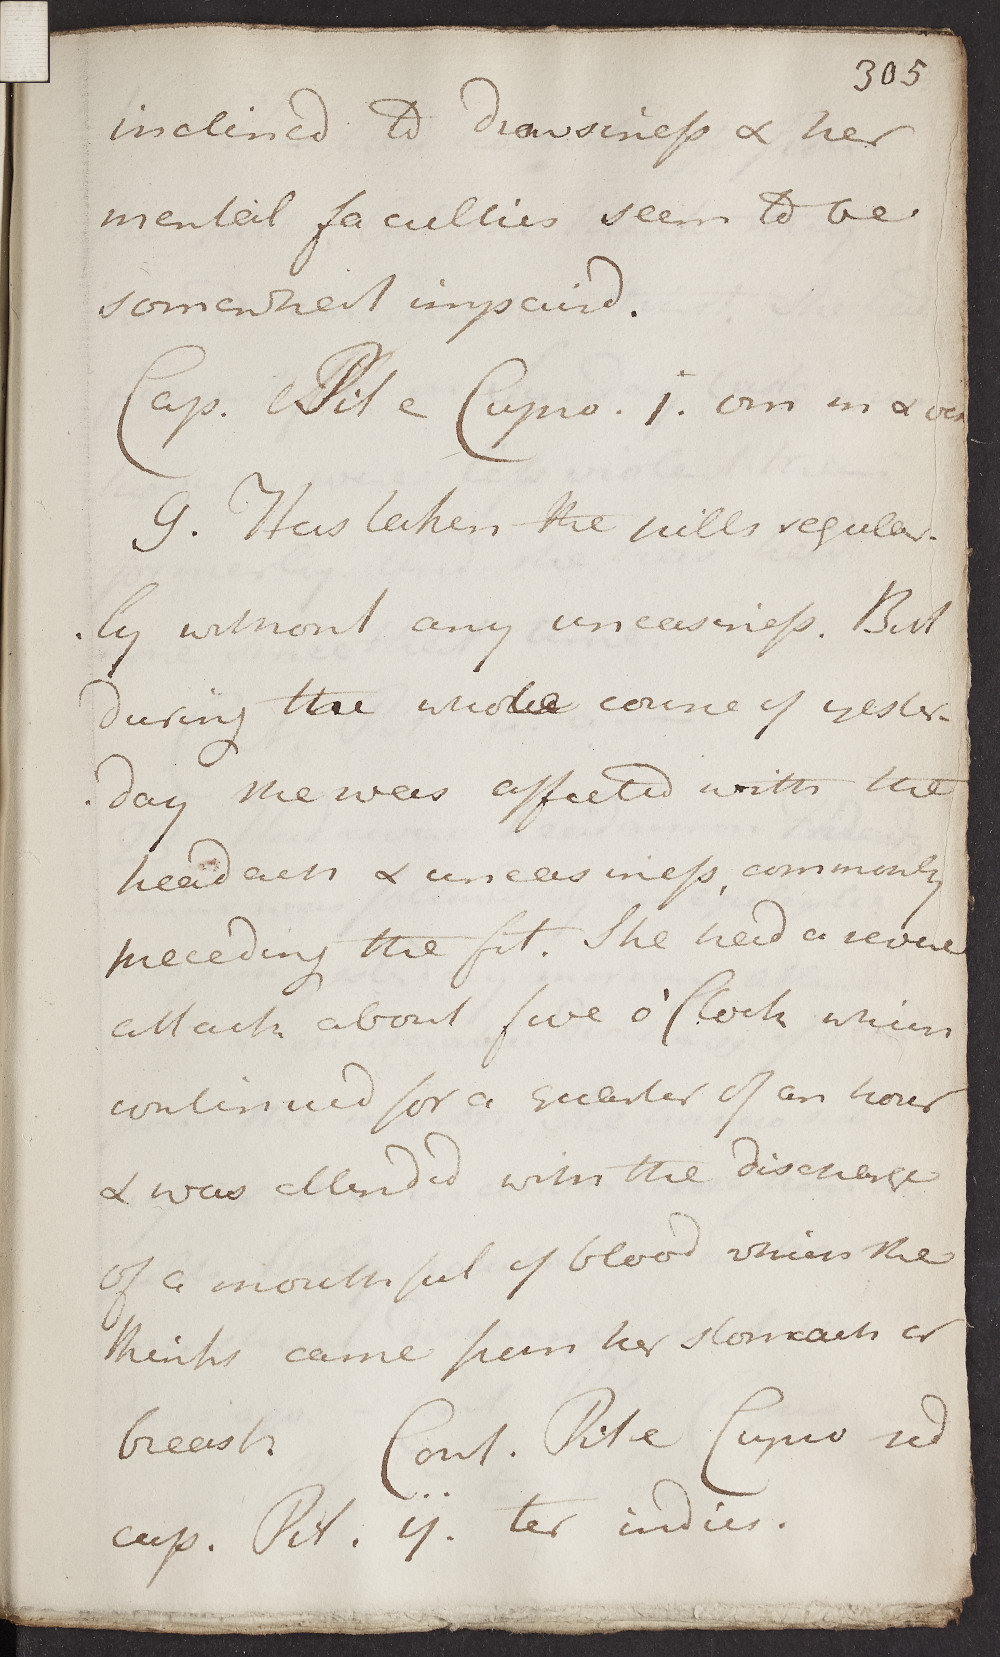 305
inclined to drowsiness & her
mental faculties seem to be
somewhat impaird.
Cap. Pil e Cupro. j. om m & ves
9. Has taken the pills regular-
-ly without any uneasiness. But
during the whole course of yester-
-day she was affected with the
headach & uneasiness, commonly
preceding the fit. She had a severe
attack about five o'Clock which
continued for a quarter of an hour
& was attended with the discharge
of a mouthful of blood which she
thinks came from her stomach or
breast. Cont. Pil e Cupro sed
cap. Pil. ij. ter indies.